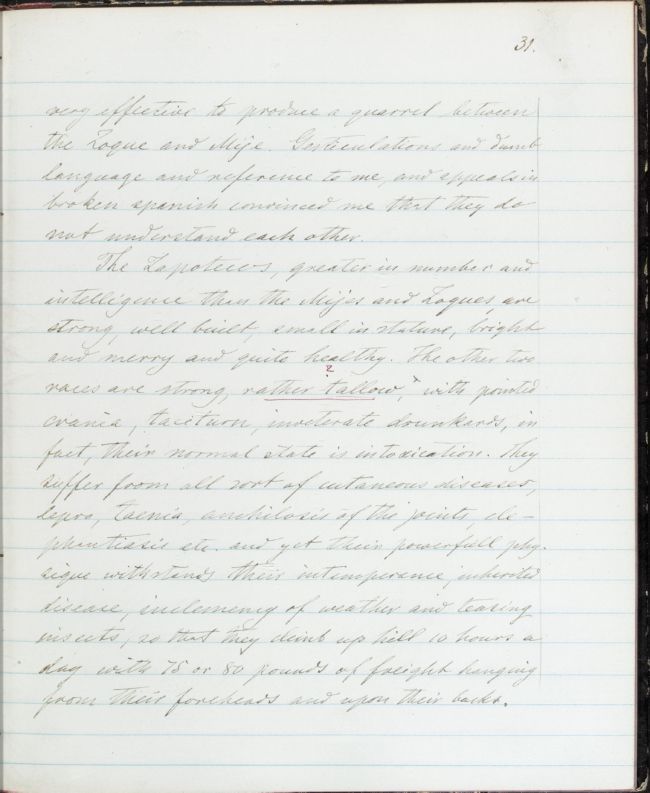 31.
very effective to produce a quarrel between
the Zoque and Mije. Gesticulations and dumb
language and reference to me, and appeals in
broken spanish convinced me that they do
not understand each other.
The Zapotecos, greater in number and
intelligence than the Mijes and Zoques, are
strong, well built, small in stature, bright
and merry and quite healthy. The other two
2
races are strong, rather tallow, with pointed
crania, taciturn, inveterate drunkards, in
fact, their normal state is intoxication. They
suffer from all sort of cutaneous diseases,
lepra, taenia, anchilosis of the joints, ele-
phantiasis etc. and yet their powerfull phy-
sique withstands their intemperance, inherited
disease, inclemency of weather and teasing
insects, so that they climb up hill 10 hours a
day with 75 or 80 pounds of freight hanging
from their foreheads and upon their backs.